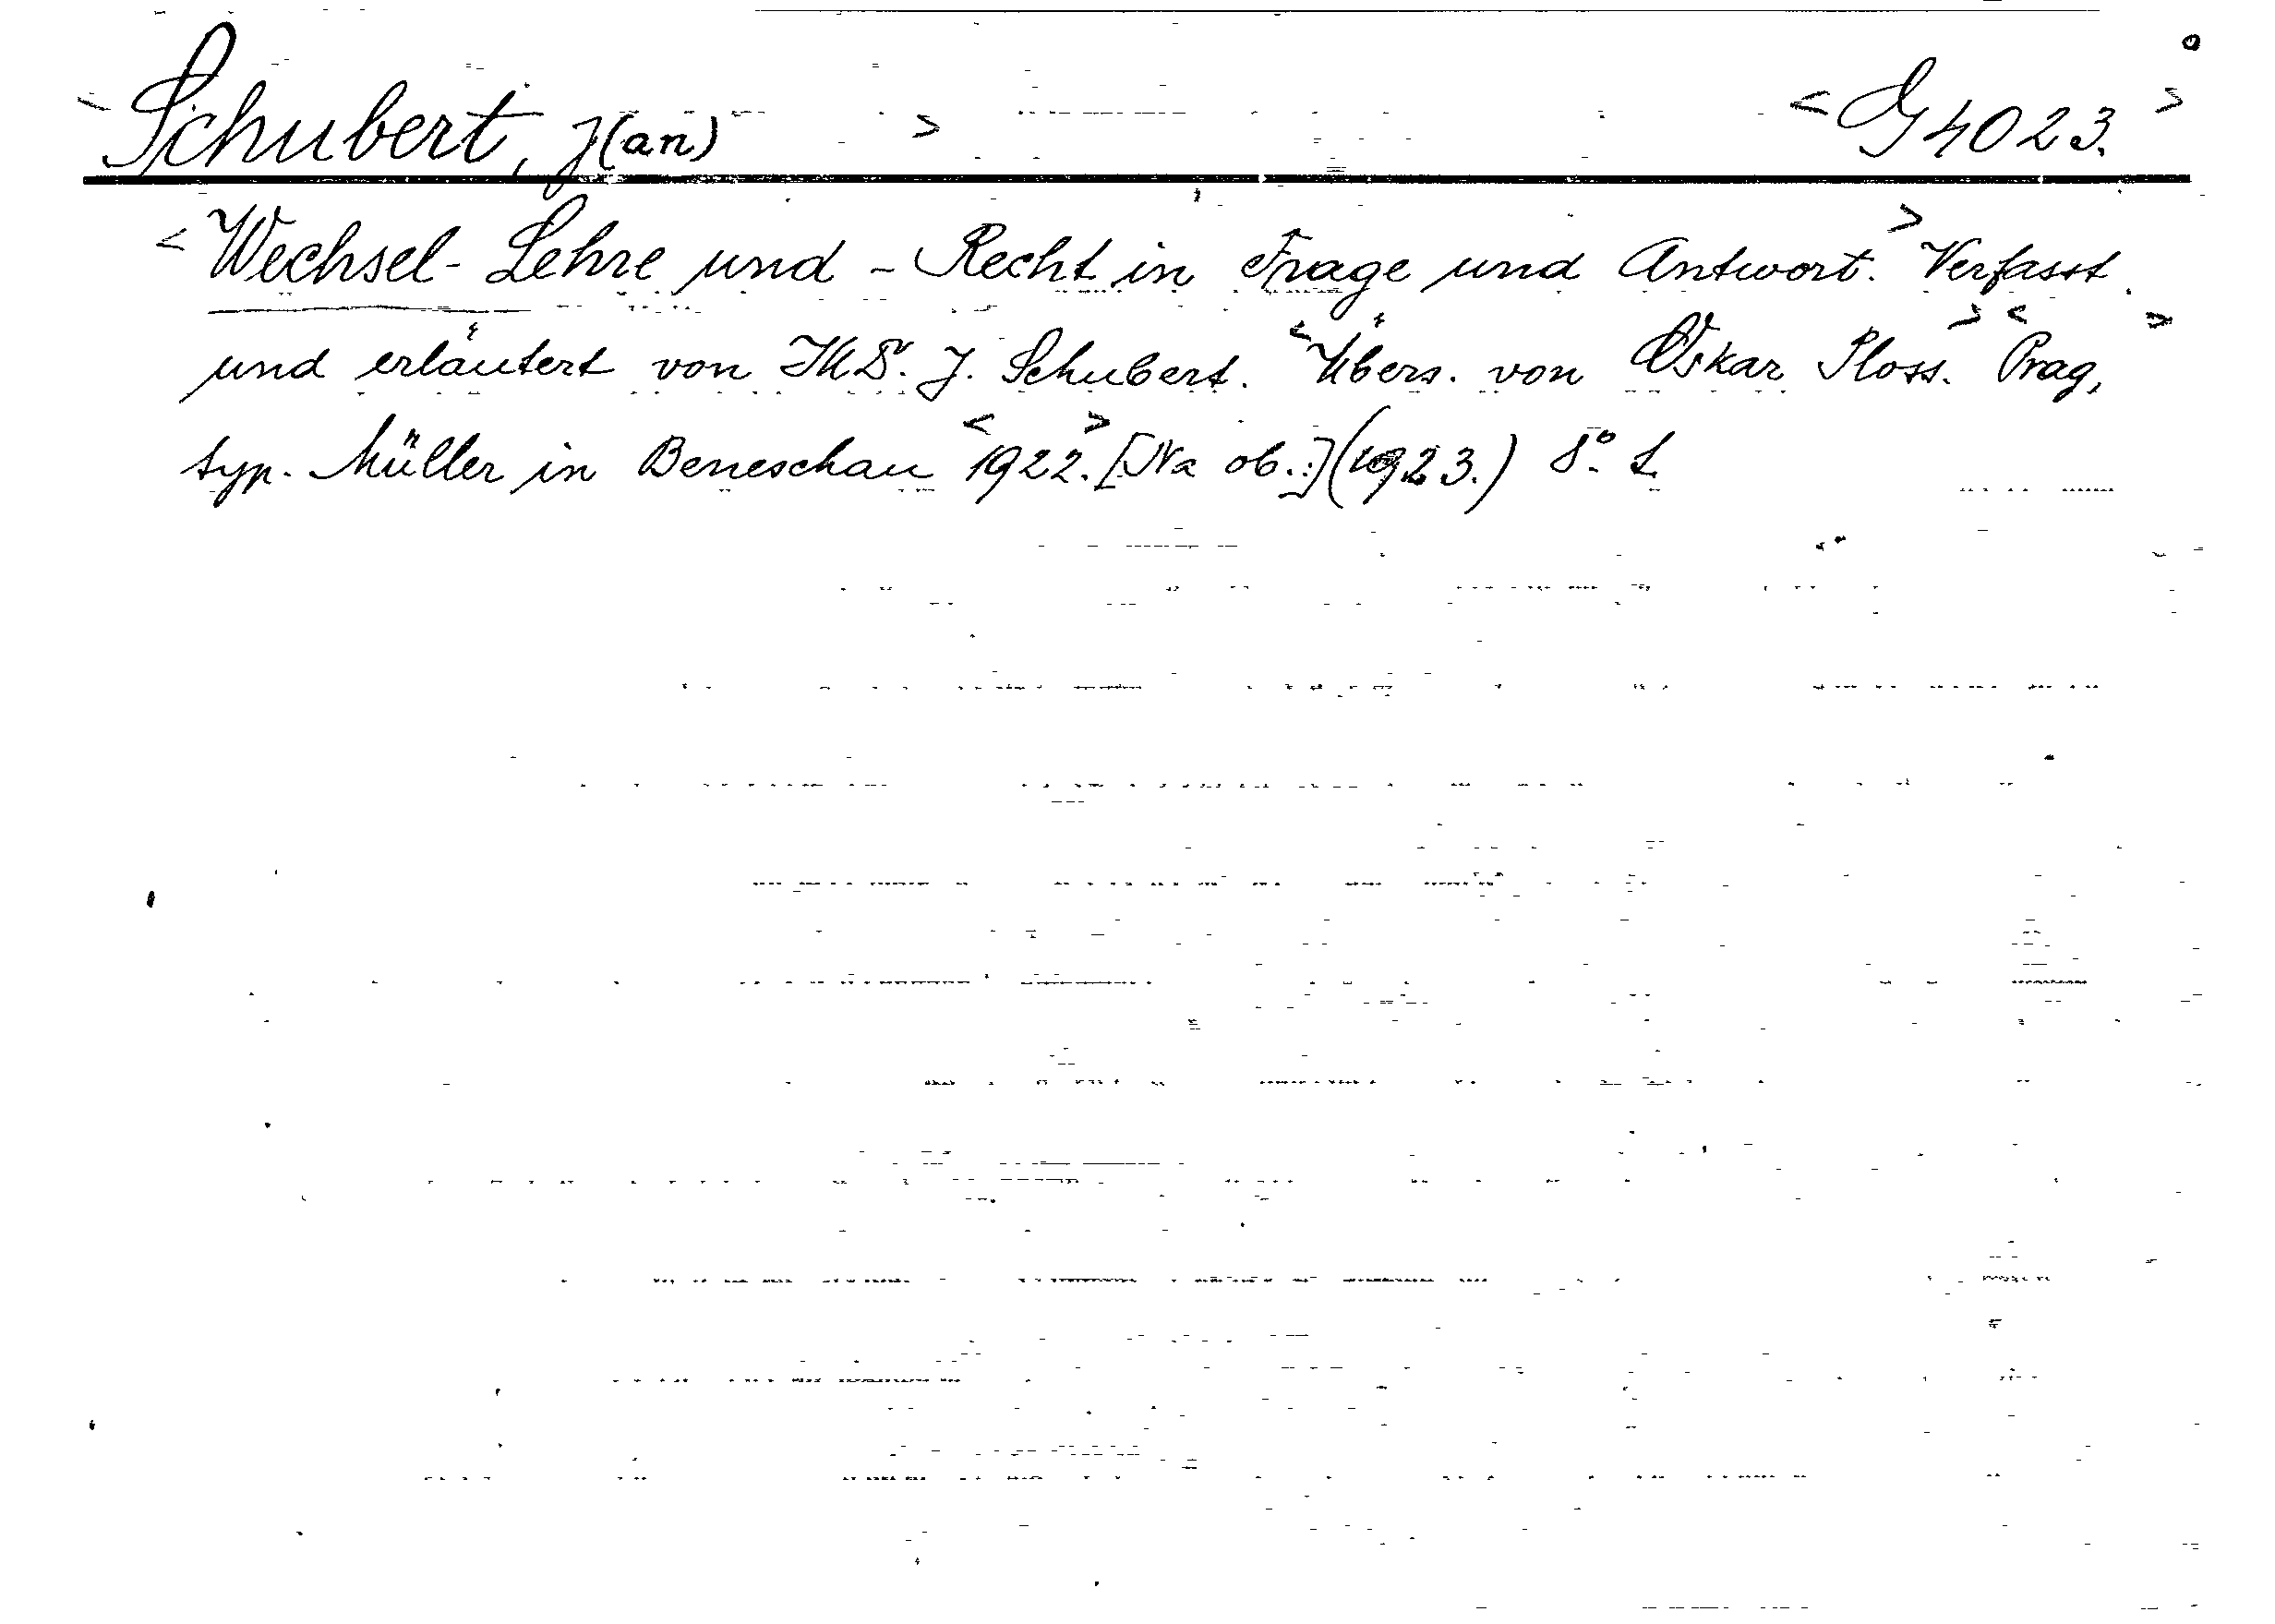 <Schubert, J(an)> <G 4023.>
<Wechsel-Lehre und -Recht in Frage und Antwort.> Verfasst
und erläutert von Dr. J. Schubert. <Übers. von Oskar Ploss.> <Prag,>
typ. Müller in Beneschau <1922.> [Na ob.:] (1923.) 8°.